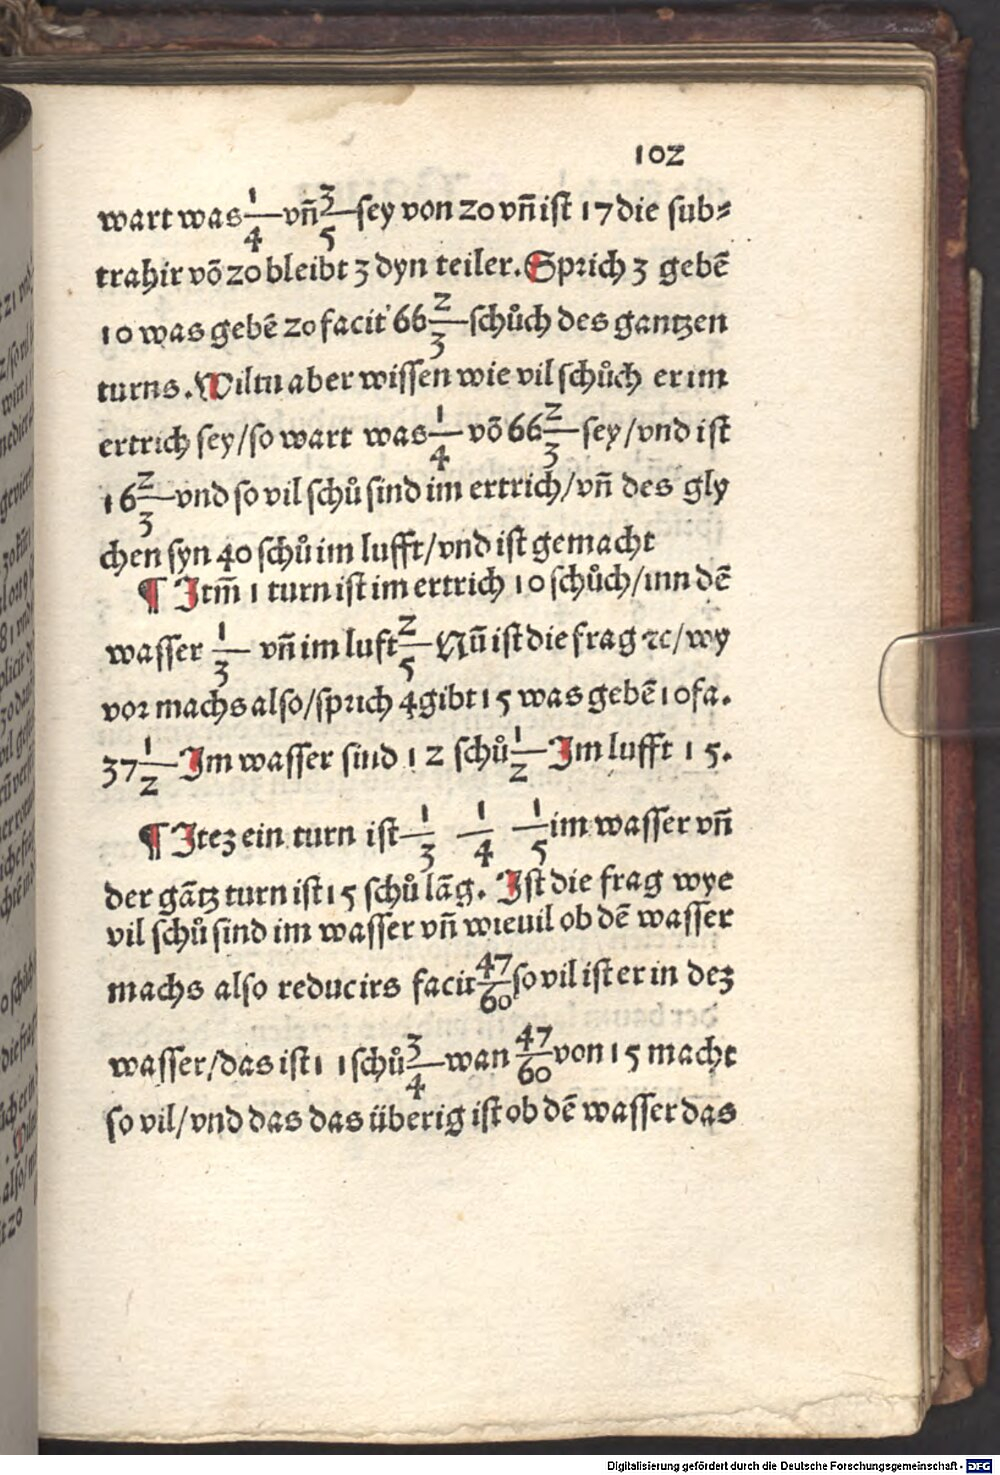 102
wart was 1/4 vn̄ 3/5 sey von 20 vn̄ ist 17 die sub⸗
trahir vō 20 bleibt 3 dyn teiler. Sprich 3 gebē
10 was gebē 20 facit 66 2/3 schůch des gantzen
turns. Wiltu aber wissen wie vil schůch er im
ertrich sey/so wart was 1/4 vō 66 2/3 sey/vnd ist
16 2/3 vnd so vil schů sind im ertrich/vn̄ des gly
chen syn 40 schů im lufft/vnd ist gemacht
¶ Itm̄ 1 turn ist im ertrich 10 schůch/inn dē
wasser 1/3 vn̄ im luft 2/5 Nū ist die frag ꝛc/wy
vor machs also/sprich 4 gibt 15 was gebē 10 fa.
37 1/2 Im wasser sind 12 schů 1/2 Im lufft 15.
¶ Itez ein turn ist 1/3 1/4 1/5 im wasser vn̄
der gātz turn ist 15 schů lāg. Ist die frag wye
vil schů sind im wasser vn̄ wieuil ob dē wasser
machs also reducirs facit 47/60 so vil ist er in dez
wasser/das ist 11 schů 3/4 wan 47/60 von 15 macht
so vil/vnd das das überig ist ob dē wasser das
Digitalisierung gefördert durch die Deutsche Forschungsgemeinschaft - DFG